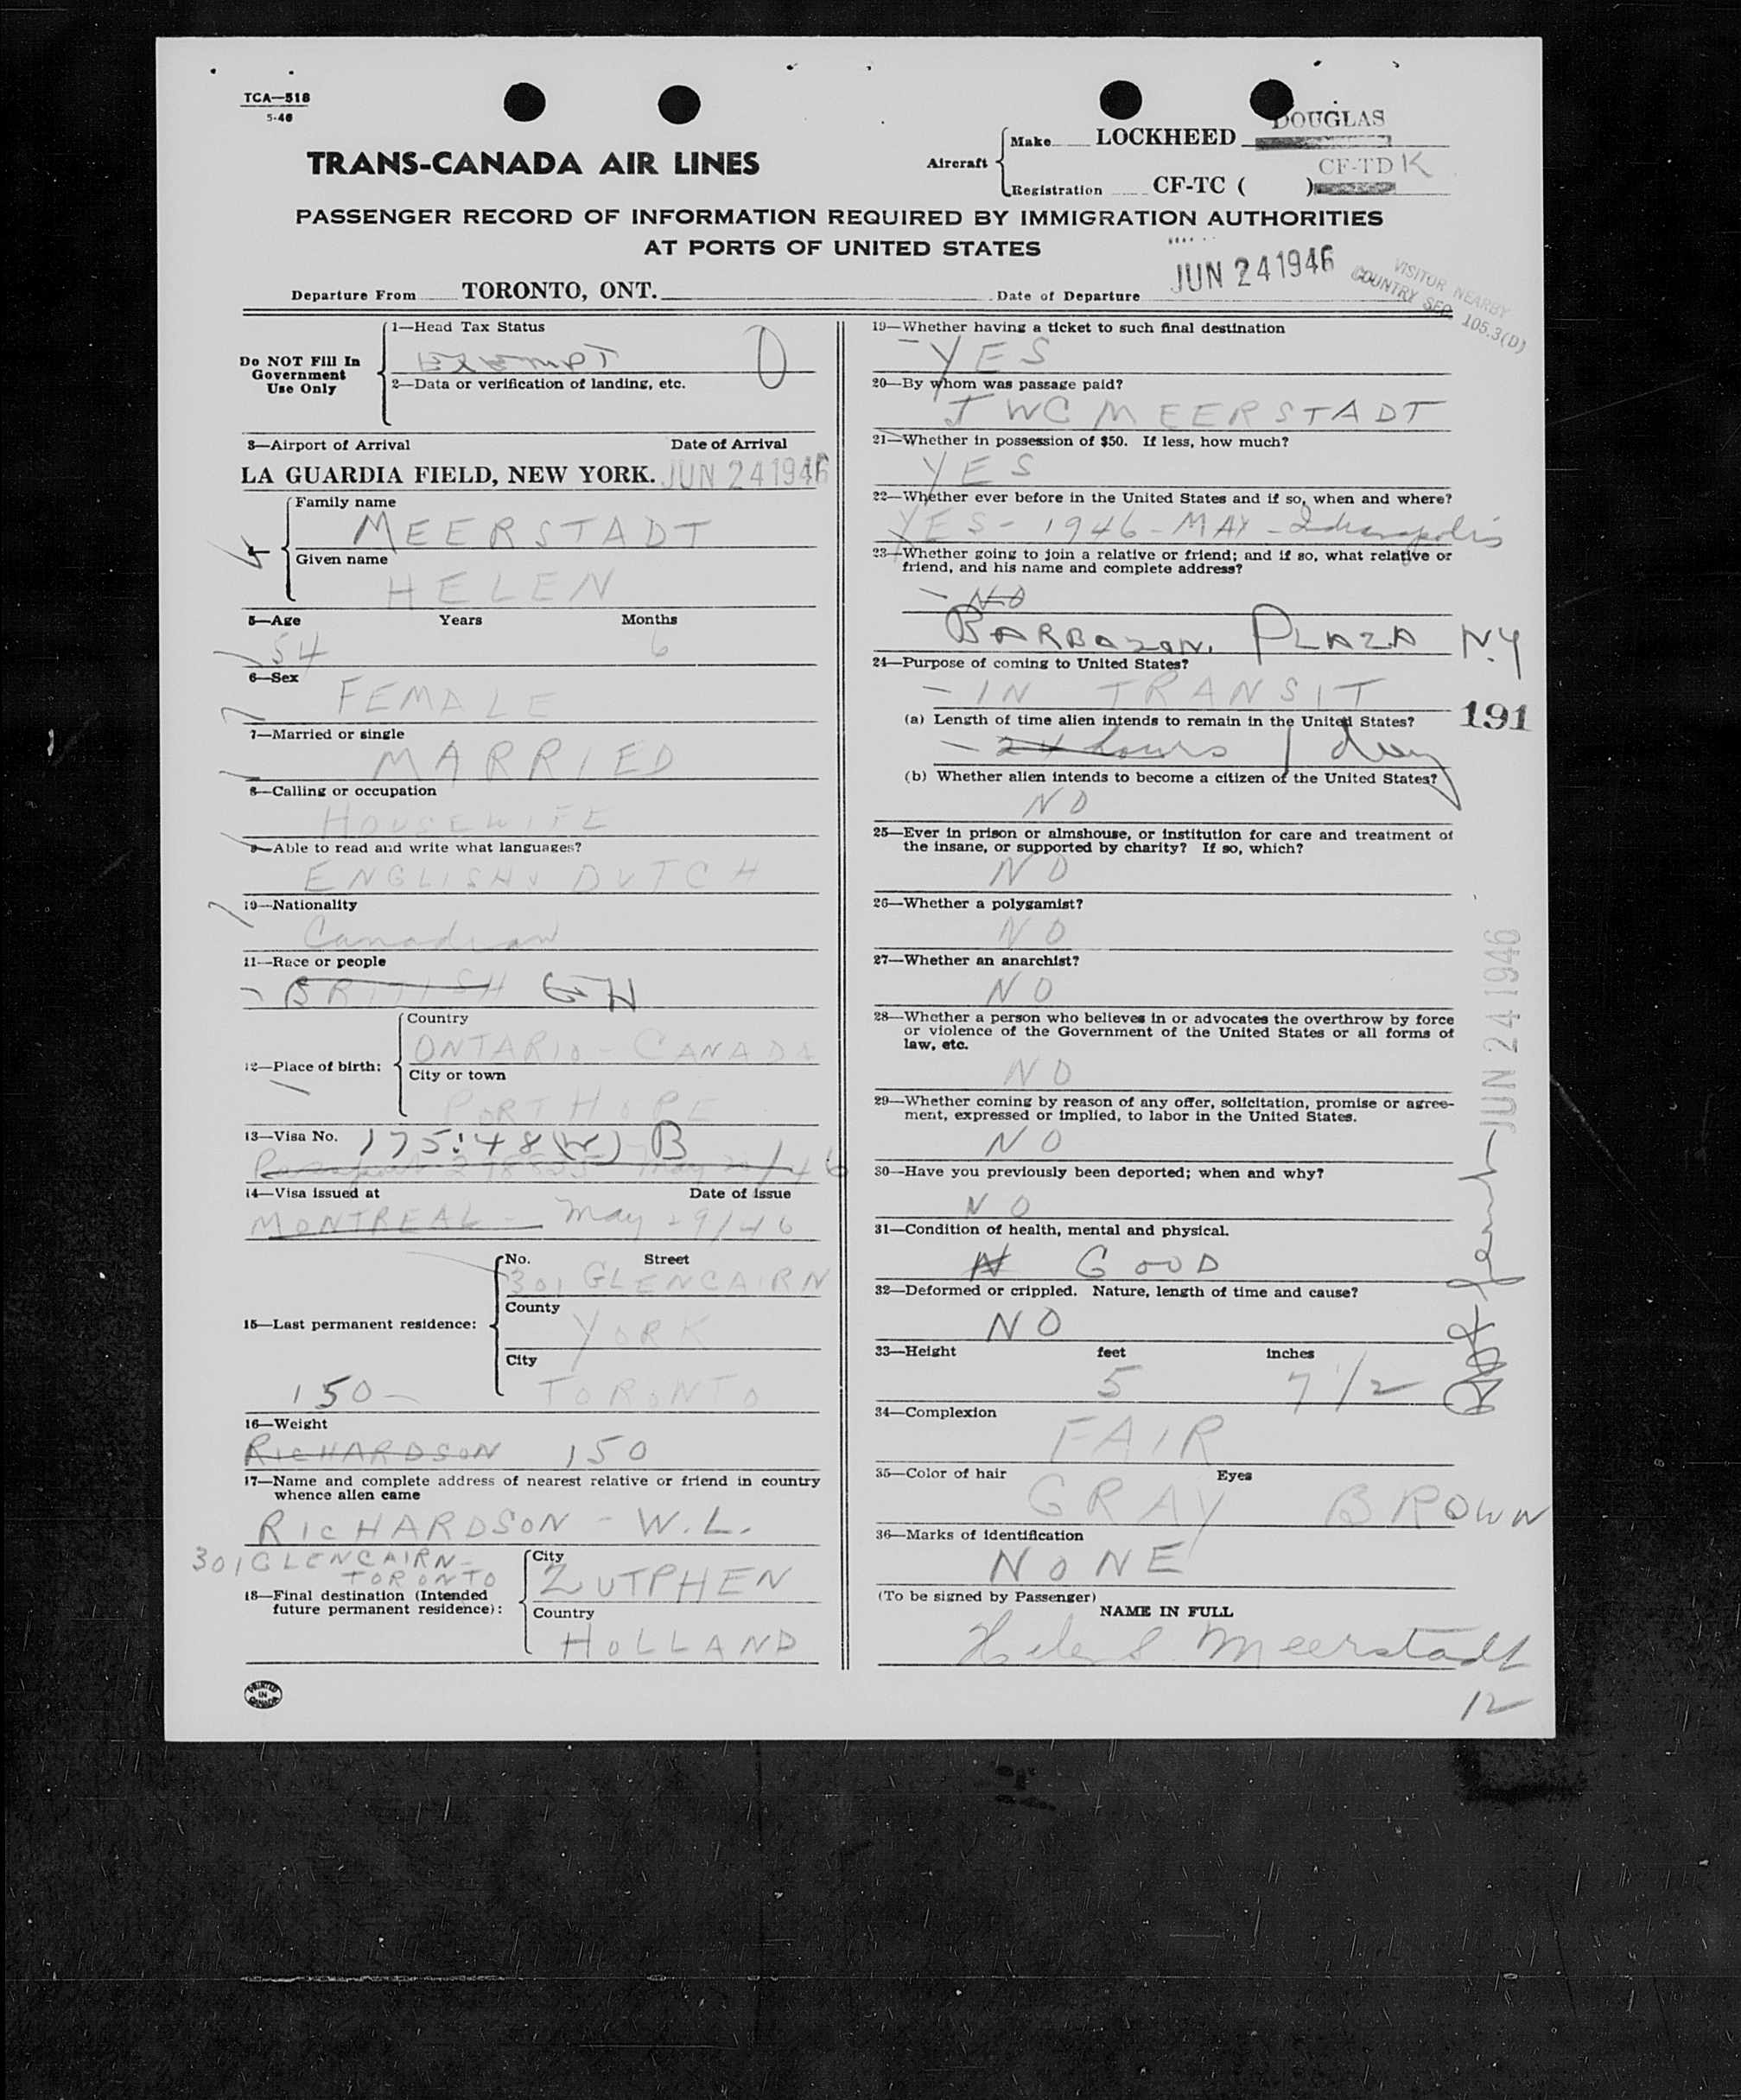 TCA—518
5-46
TRANS-CANADA AIR LINES
Aircraft
Make LOCKHEED DOUGLAS
Registration CF-TC ( ) CF-TDK
PASSENGER RECORD OF INFORMATION REQUIRED BY IMMIGRATION AUTHORITIES
AT PORTS OF UNITED STATES
JUN 24 1946
VISITOR NEARBY
COUNTRY SEC 105.3(D)
Departure From TORONTO, ONT. Date of Departure
Do NOT Fill In
Government
Use Only
1—Head Tax Status
EXEMPT
2—Data or verification of landing, etc.
3—Airport of Arrival Date of Arrival
LA GUARDIA FIELD, NEW YORK. JUN 24 1946
Family name
MEERSTADT
4
Given name
HELEN
5—Age Years Months
54 6
6—Sex
FEMALE
7—Married or single
MARRIED
8—Calling or occupation
HOUSEWIFE
9—Able to read and write what languages?
ENGLISH DUTCH
10—Nationality
Canadian
11—Race or people
BRITISH
12—Place of birth:
Country
ONTARIO - CANADA
City or town
PORT HOPE
13—Visa No. B
14—Visa issued at Date of issue
MONTREAL - May 29/46
15—Last permanent residence:
No. Street
301 GLENCAIRN
County
YORK
City
TORONTO
150
16—Weight
RICHARDSON 150
17—Name and complete address of nearest relative or friend in country
whence alien came
RICHARDSON - W.L.
301 GLENCAIRN -
TORONTO
18—Final destination (Intended
future permanent residence):
City
ZUTPHEN
Country
HOLLAND
PRINTED
IN
CANADA
19—Whether having a ticket to such final destination
YES
20—By whom was passage paid?
J WC MEERSTADT
21—Whether in possession of $50. If less, how much?
YES
22—Whether ever before in the United States and if so, when and where?
YES - 1946 - MAY - Indianapolis
23—Whether going to join a relative or friend; and if so, what relative or
friend, and his name and complete address?
- NO
BARBAZON. PLAZA N.Y
24—Purpose of coming to United States?
- IN TRANSIT
191
(a) Length of time alien intends to remain in the United States?
- 24 hours 1 day
(b) Whether alien intends to become a citizen of the United States?
NO
25—Ever in prison or almshouse, or institution for care and treatment of
the insane, or supported by charity? If so, which?
NO
26—Whether a polygamist?
NO
27—Whether an anarchist?
NO
28—Whether a person who believes in or advocates the overthrow by force
or violence of the Government of the United States or all forms of
law, etc.
NO
29—Whether coming by reason of any offer, solicitation, promise or agree-
ment, expressed or implied, to labor in the United States.
NO
30—Have you previously been deported; when and why?
NO
31—Condition of health, mental and physical.
N GOOD
32—Deformed or crippled. Nature, length of time and cause?
NO
33—Height feet inches
5 7 1/2
34—Complexion
FAIR
35—Color of hair Eyes
GRAY BROWN
36—Marks of identification
NONE
(To be signed by Passenger)
NAME IN FULL
Helen S. Meerstadt
12
JUN 24 1946